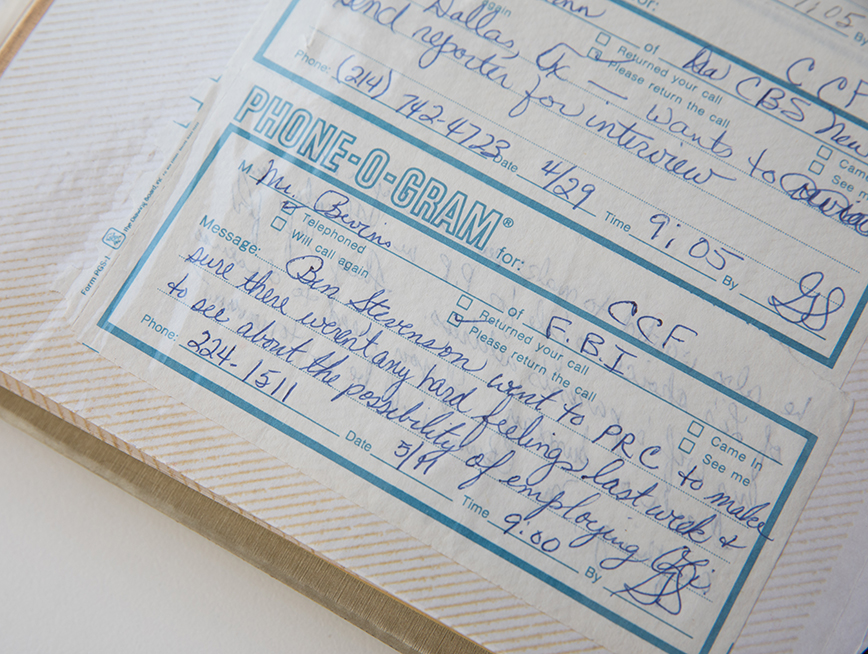 again
for:
1:05
By
of
CCF
Returned your call
Please return the call
CBS News
Dallas, Tx — wants to
send reporter for interview
Came
See
Phone: (214) 742-4723
Date 4/29
Time 9:05
By GS
PHONE-O-GRAM® for: CCF
M Mr. Bivins
of F.B.I.
Telephoned
Will call again
Returned your call
Please return the call
Came in
See me
Message: Ben Stevenson went to PRC to make
sure there weren't any hard feelings last week &
to see about the possibility of employing
Phone: 224-1511
Date 5/11
Time 9:00
By GS
Form PGS-1